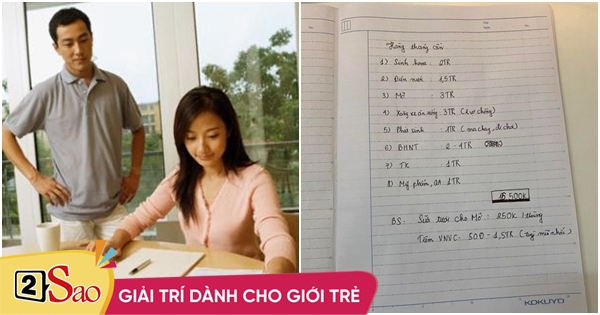 Hàng tháng cần:
1) Sinh hoạt : 2TR
2) Điện nước : 1,5TR
3) Mỡ : 3TR
4) Xăng xe ăn uống: 3TR (2 vợ chồng)
5) Phát sinh : 1TR (ma chay, đi chơi)
6) BHNT : 2 - 1TR
7) TK : 1TR
8) Mỹ phẩm, QA : 1TR
15.500K
BS: Sữa tươi cho Mỡ : 250K / thùng
Tiêm VNVC: 500 - 1,5TR (tuỳ mũi nhá)
KOKUYO
2Sao
GIẢI TRÍ DÀNH CHO GIỚI TRẺ